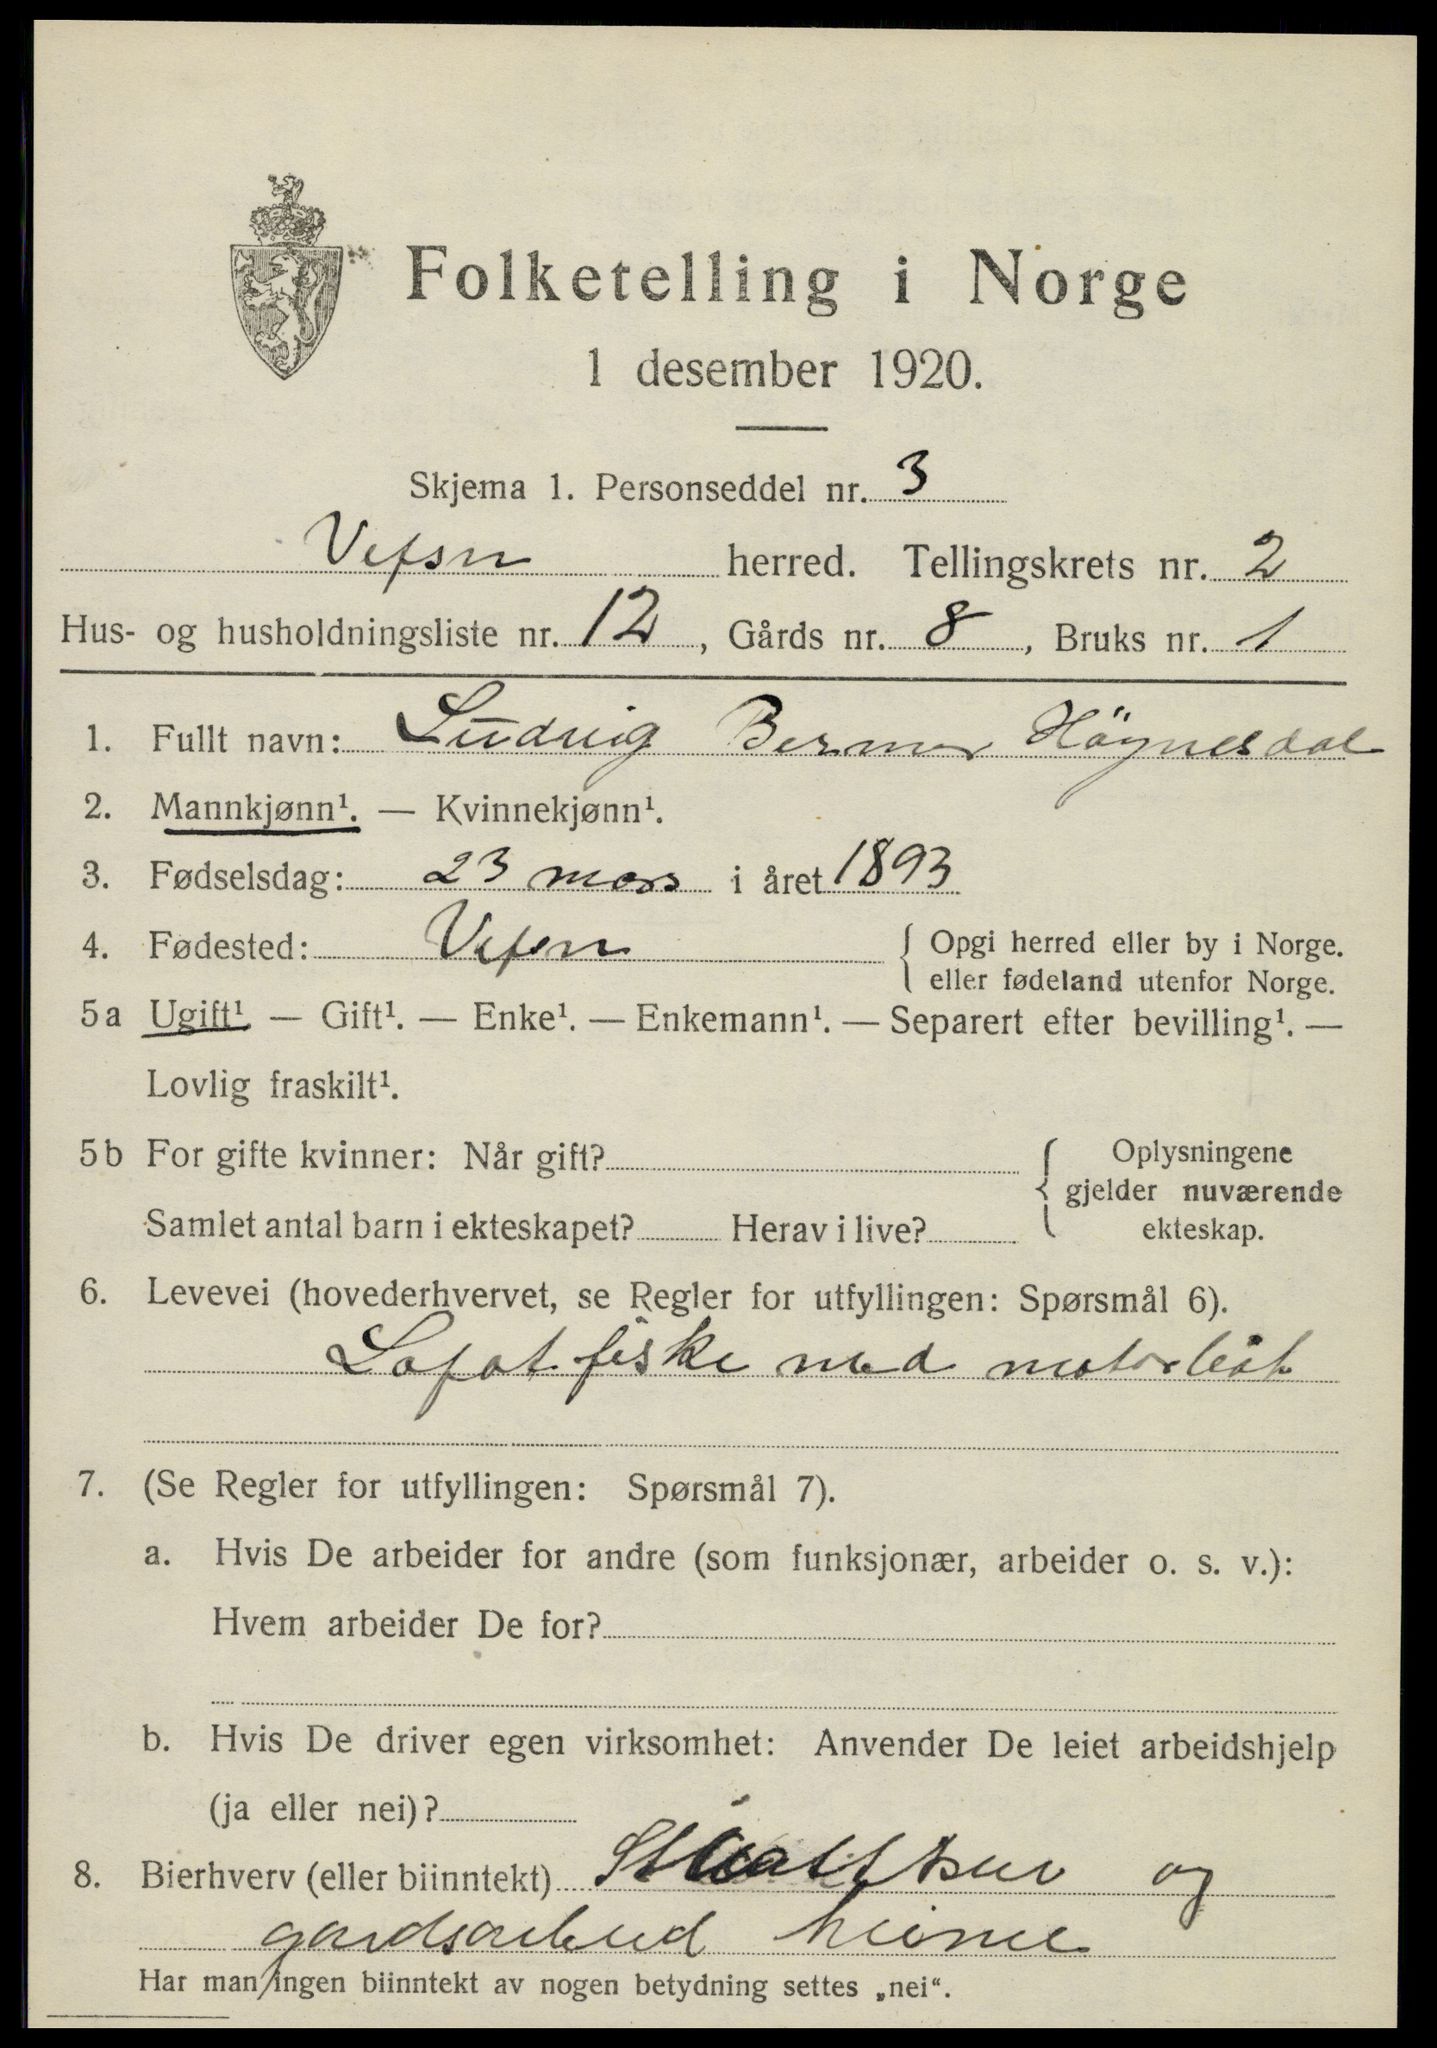 Folketelling i Norge
1 desember 1920.
Skjema 1. Personseddel nr. 3
Vefsn herred. Tellingskrets nr. 2
Hus- og husholdningsliste nr. 12, Gårds nr. 8, Bruks nr. 1
1. Fullt navn: Ludvig Höynesdal
2. Mannkjønn¹. — Kvinnekjønn¹.
3. Fødselsdag: 23 mars i året 1893
4. Fødested: Vefsn { Opgi herred eller by i Norge.
eller fødeland utenfor Norge.
5a Ugift¹. — Gift¹. — Enke¹. — Enkemann¹. — Separert efter bevilling¹. —
Lovlig fraskilt¹.
5b For gifte kvinner: Når gift? { Oplysningene
gjelder nuværende
Samlet antal barn i ekteskapet? Herav i live? ekteskap.
6. Levevei (hovederhvervet, se Regler for utfyllingen: Spørsmål 6).
Lofotfiske med motorbåt
7. (Se Regler for utfyllingen: Spørsmål 7).
a. Hvis De arbeider for andre (som funksjonær, arbeider o. s. v.):
Hvem arbeider De for?
b. Hvis De driver egen virksomhet: Anvender De leiet arbeidshjelp
(ja eller nei)?
8. Bierhverv (eller biinntekt) og
gardsarbeid heime
Har man ingen biinntekt av nogen betydning settes „nei“.